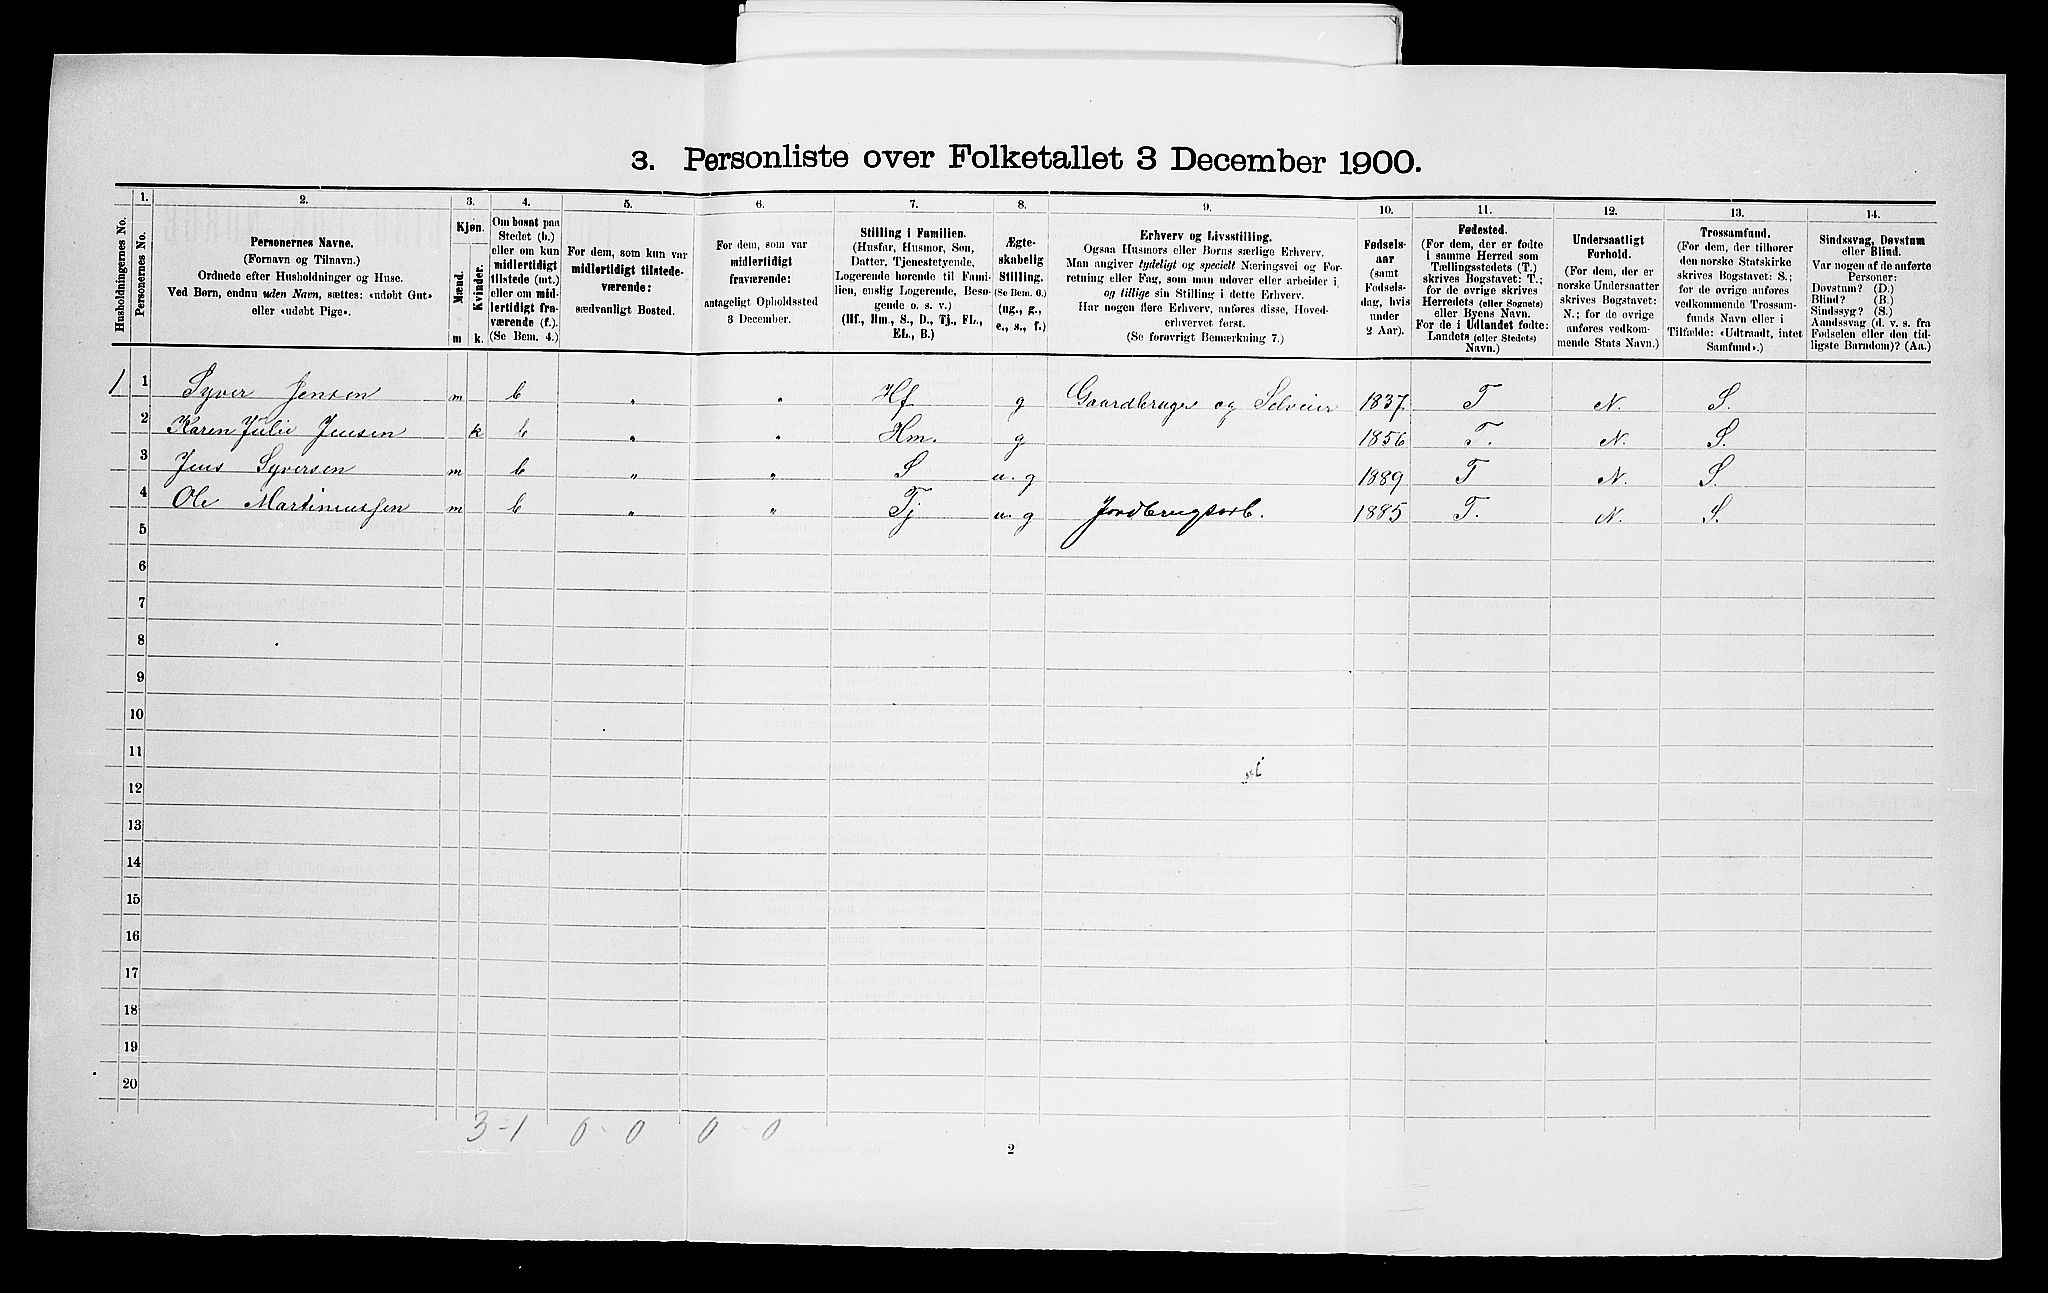 3. Personliste over Folketallet 3 December 1900.
1. 2. 3. 4. 5. 6. 7. 8. 9. 10. 11. 12. 13. 14.
Husholdningernes No.
Personernes No.
Personernes Navne.
(Fornavn og Tilnavn.)
Ordnede efter Husholdninger og Huse.
Ved Børn, endnu uden Navn, sættes: «udøbt Gut»
eller «udøbt Pige».
Kjøn.
Mænd.
Kvinder.
m k.
Om bosat paa
Stedet (b.)
eller om kun
midlertidigt
tilstede (mt.)
eller om mid-
lertidigt fra-
værende (f.).
(Se Bem. 4.)
For dem, som kun var
midlertidigt tilstede-
værende:
sædvanligt Bosted.
For dem, som var
midlertidigt
fraværende:
antageligt Opholdssted
3 December.
Stilling i Familien.
(Husfar, Husmor, Søn,
Datter, Tjenestetyende,
Logerende hørende til Fami-
lien, enslig Logerende, Besø-
gende o. s. v.)
(Hf., Hm., S., D., Tj., FL.,
EL., B.)
Ægte-
skabelig
Stilling.
(Se Bem. 6.)
(ug., g.,
e., s., f.)
Erhverv og Livsstilling.
Ogsaa Husmors eller Børns særlige Erhverv.
Man angiver tydeligt og specielt Næringsvei og For-
retning eller Fag, som man udøver eller arbeider i,
og tillige sin Stilling i dette Erhverv.
Har nogen flere Erhverv, anføres disse, Hoved-
erhvervet først.
(Se forøvrigt Bemærkning 7.)
Fødsels-
aar
(samt
Fødsels-
dag, hvis
under
2 Aar).
Fødested.
(For dem, der er fødte
i samme Herred som
Tællingsstedets (T.)
skrives Bogstavet: T.;
for de øvrige skrives
Herredets (eller Sognets)
eller Byens Navn.
For de i Udlandet fødte:
Landets (eller Stedets)
Navn.)
Undersaatligt
Forhold.
(For dem, der er
norske Undersaatter
skrives Bogstavet:
N.; for de øvrige
anføres vedkom-
mende Stats Navn.)
Trossamfund.
(For dem, der tilhører
den norske Statskirke
skrives Bogstavet: S.;
for de øvrige anføres
vedkommende Trossam-
funds Navn eller i
Tilfælde: «Udtraadt, intet
Samfund».)
Sindssvag, Døvstum
eller Blind.
Var nogen af de anførte
Personer:
Døvstum? (D.)
Blind? (B.)
Sindssyg? (S.)
Aandssvag (d. v. s. fra
Fødselen eller den tid-
ligste Barndom)? (Aa.)
1 1 Syver Jensen m b " " Hf g Gaardbruger og Selveier 1837. T N. S.
2 Karen Julie Jensen k b " " Hm. g 1856 T. N. S.
3 Jens Syversen m b " " S u. g 1889 T N. S.
4 Ole Martiniussen m b " " Tj u. g Jordbrugsarb. 1885 T. N. S.
5
6
7
8
9
10
11
12
13
14
15
16
17
18
19
20
3-1 0-0 0-0
2